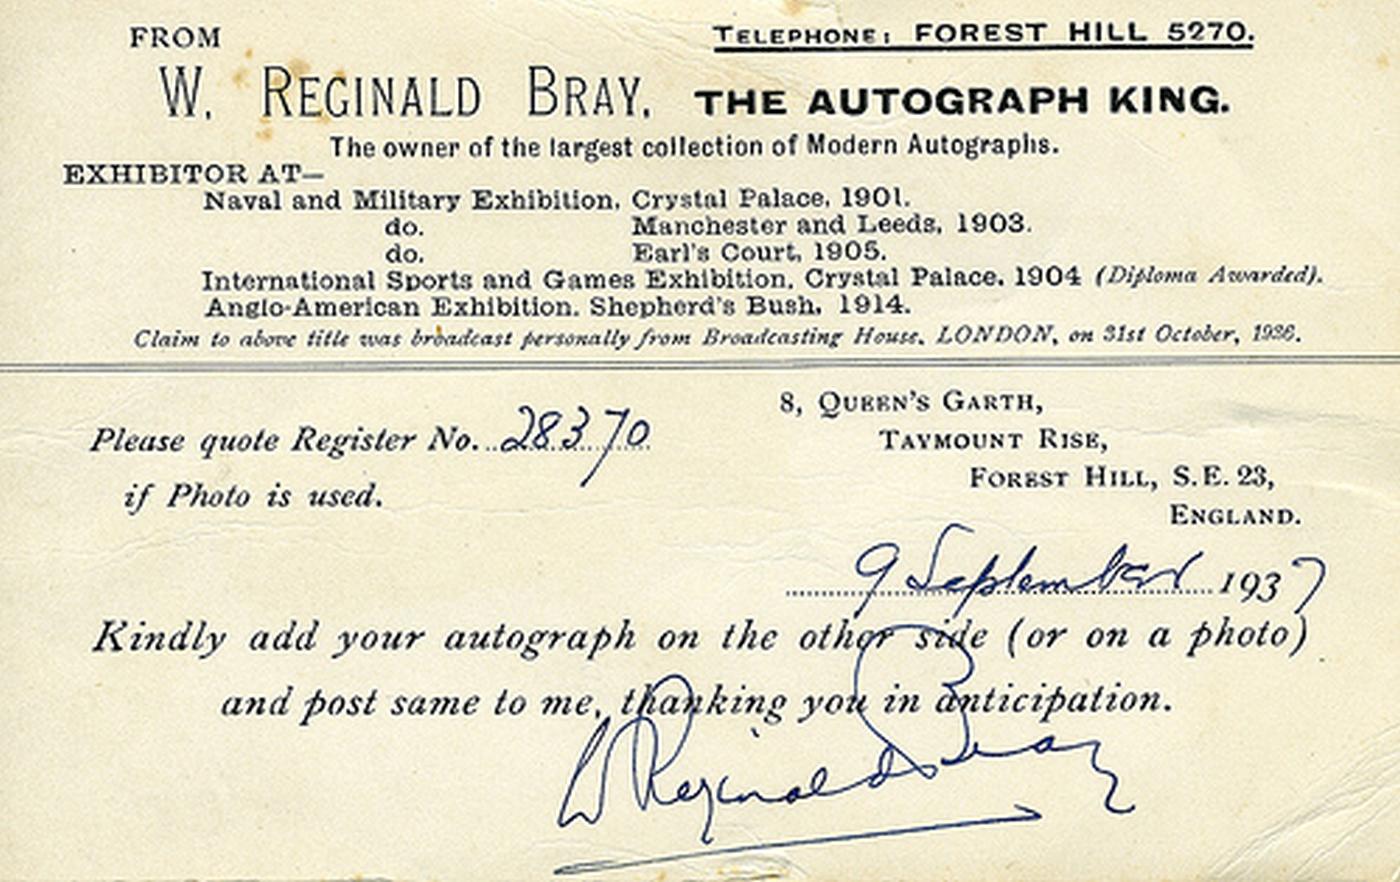 FROM
TELEPHONE: FOREST HILL 5270.
W. REGINALD BRAY. THE AUTOGRAPH KING.
The owner of the largest collection of Modern Autographs.
EXHIBITOR AT—
Naval and Military Exhibition, Crystal Palace, 1901.
do. Manchester and Leeds, 1903.
do. Earl's Court, 1905.
International Sports and Games Exhibition, Crystal Palace, 1904 (Diploma Awarded).
Anglo-American Exhibition. Shepherd's Bush, 1914.
Claim to above title was broadcast personally from Broadcasting House, LONDON, on 31st October, 1936.
8, QUEEN'S GARTH,
Please quote Register No. 28370
TAYMOUNT RISE,
FOREST HILL, S.E. 23,
if Photo is used.
ENGLAND.
9 September 1937
Kindly add your autograph on the other side (or on a photo)
and post same to me, thanking you in anticipation.
W Reginald Bray